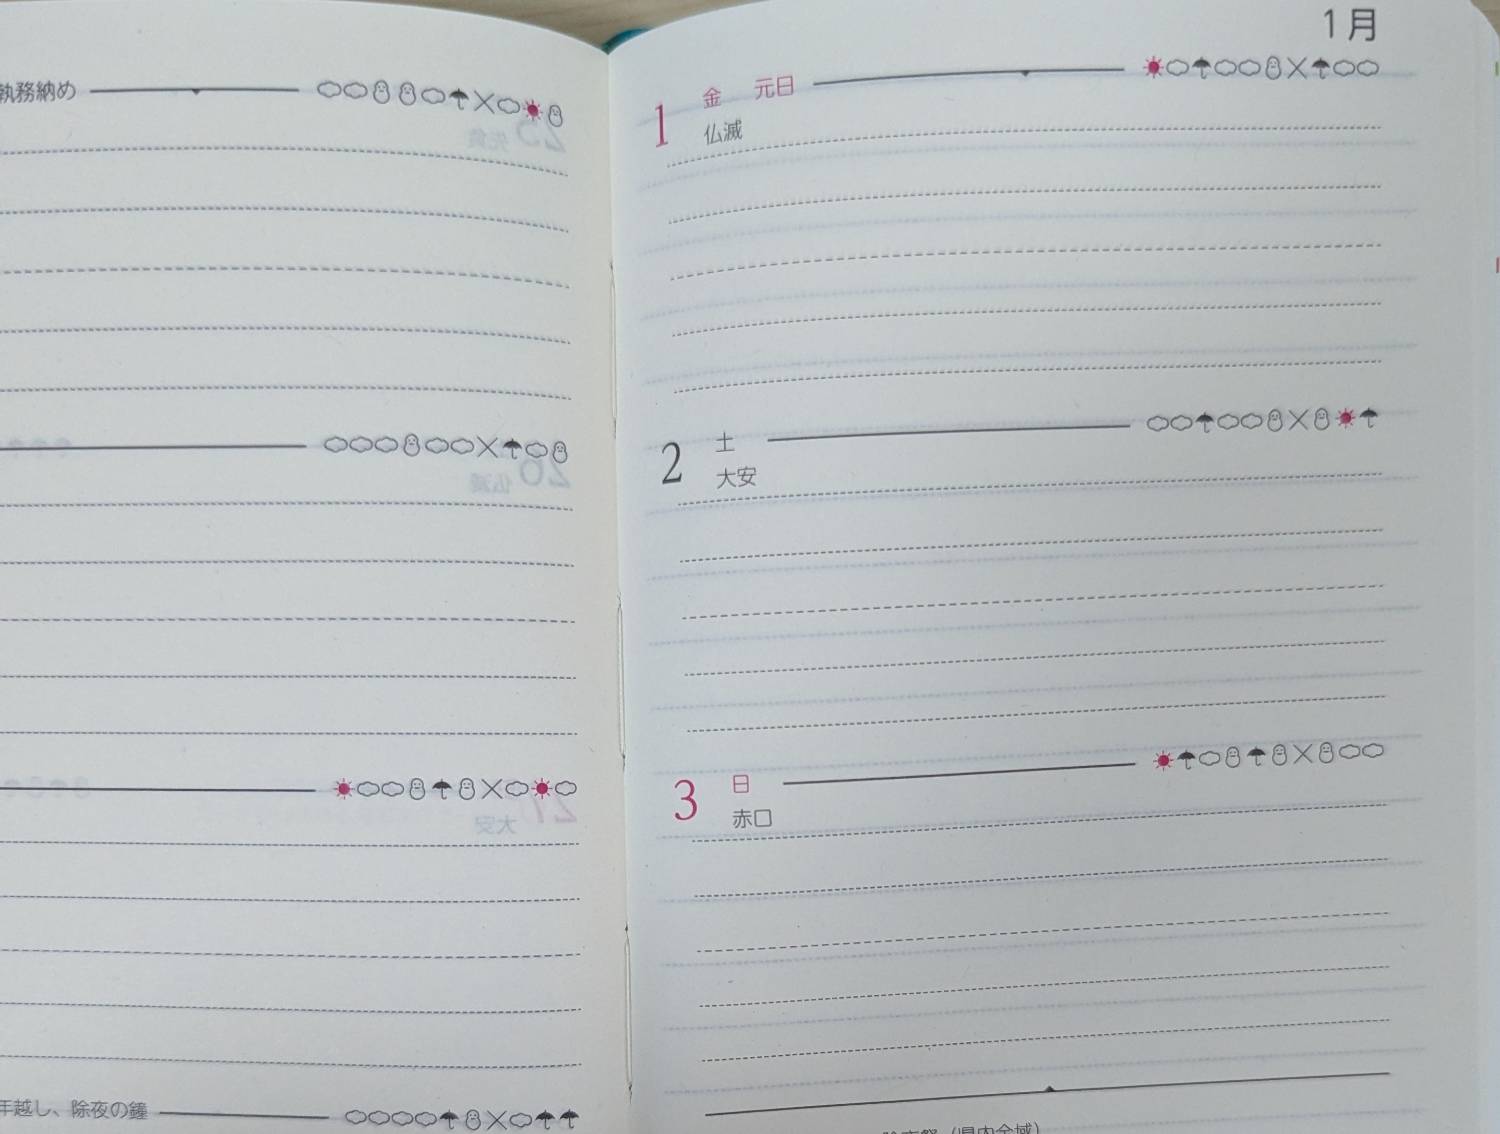 執務納め
年越し、除夜の鐘
1月
1 金 元日
仏滅
2 土
大安
3 日
赤口
(県内全域)